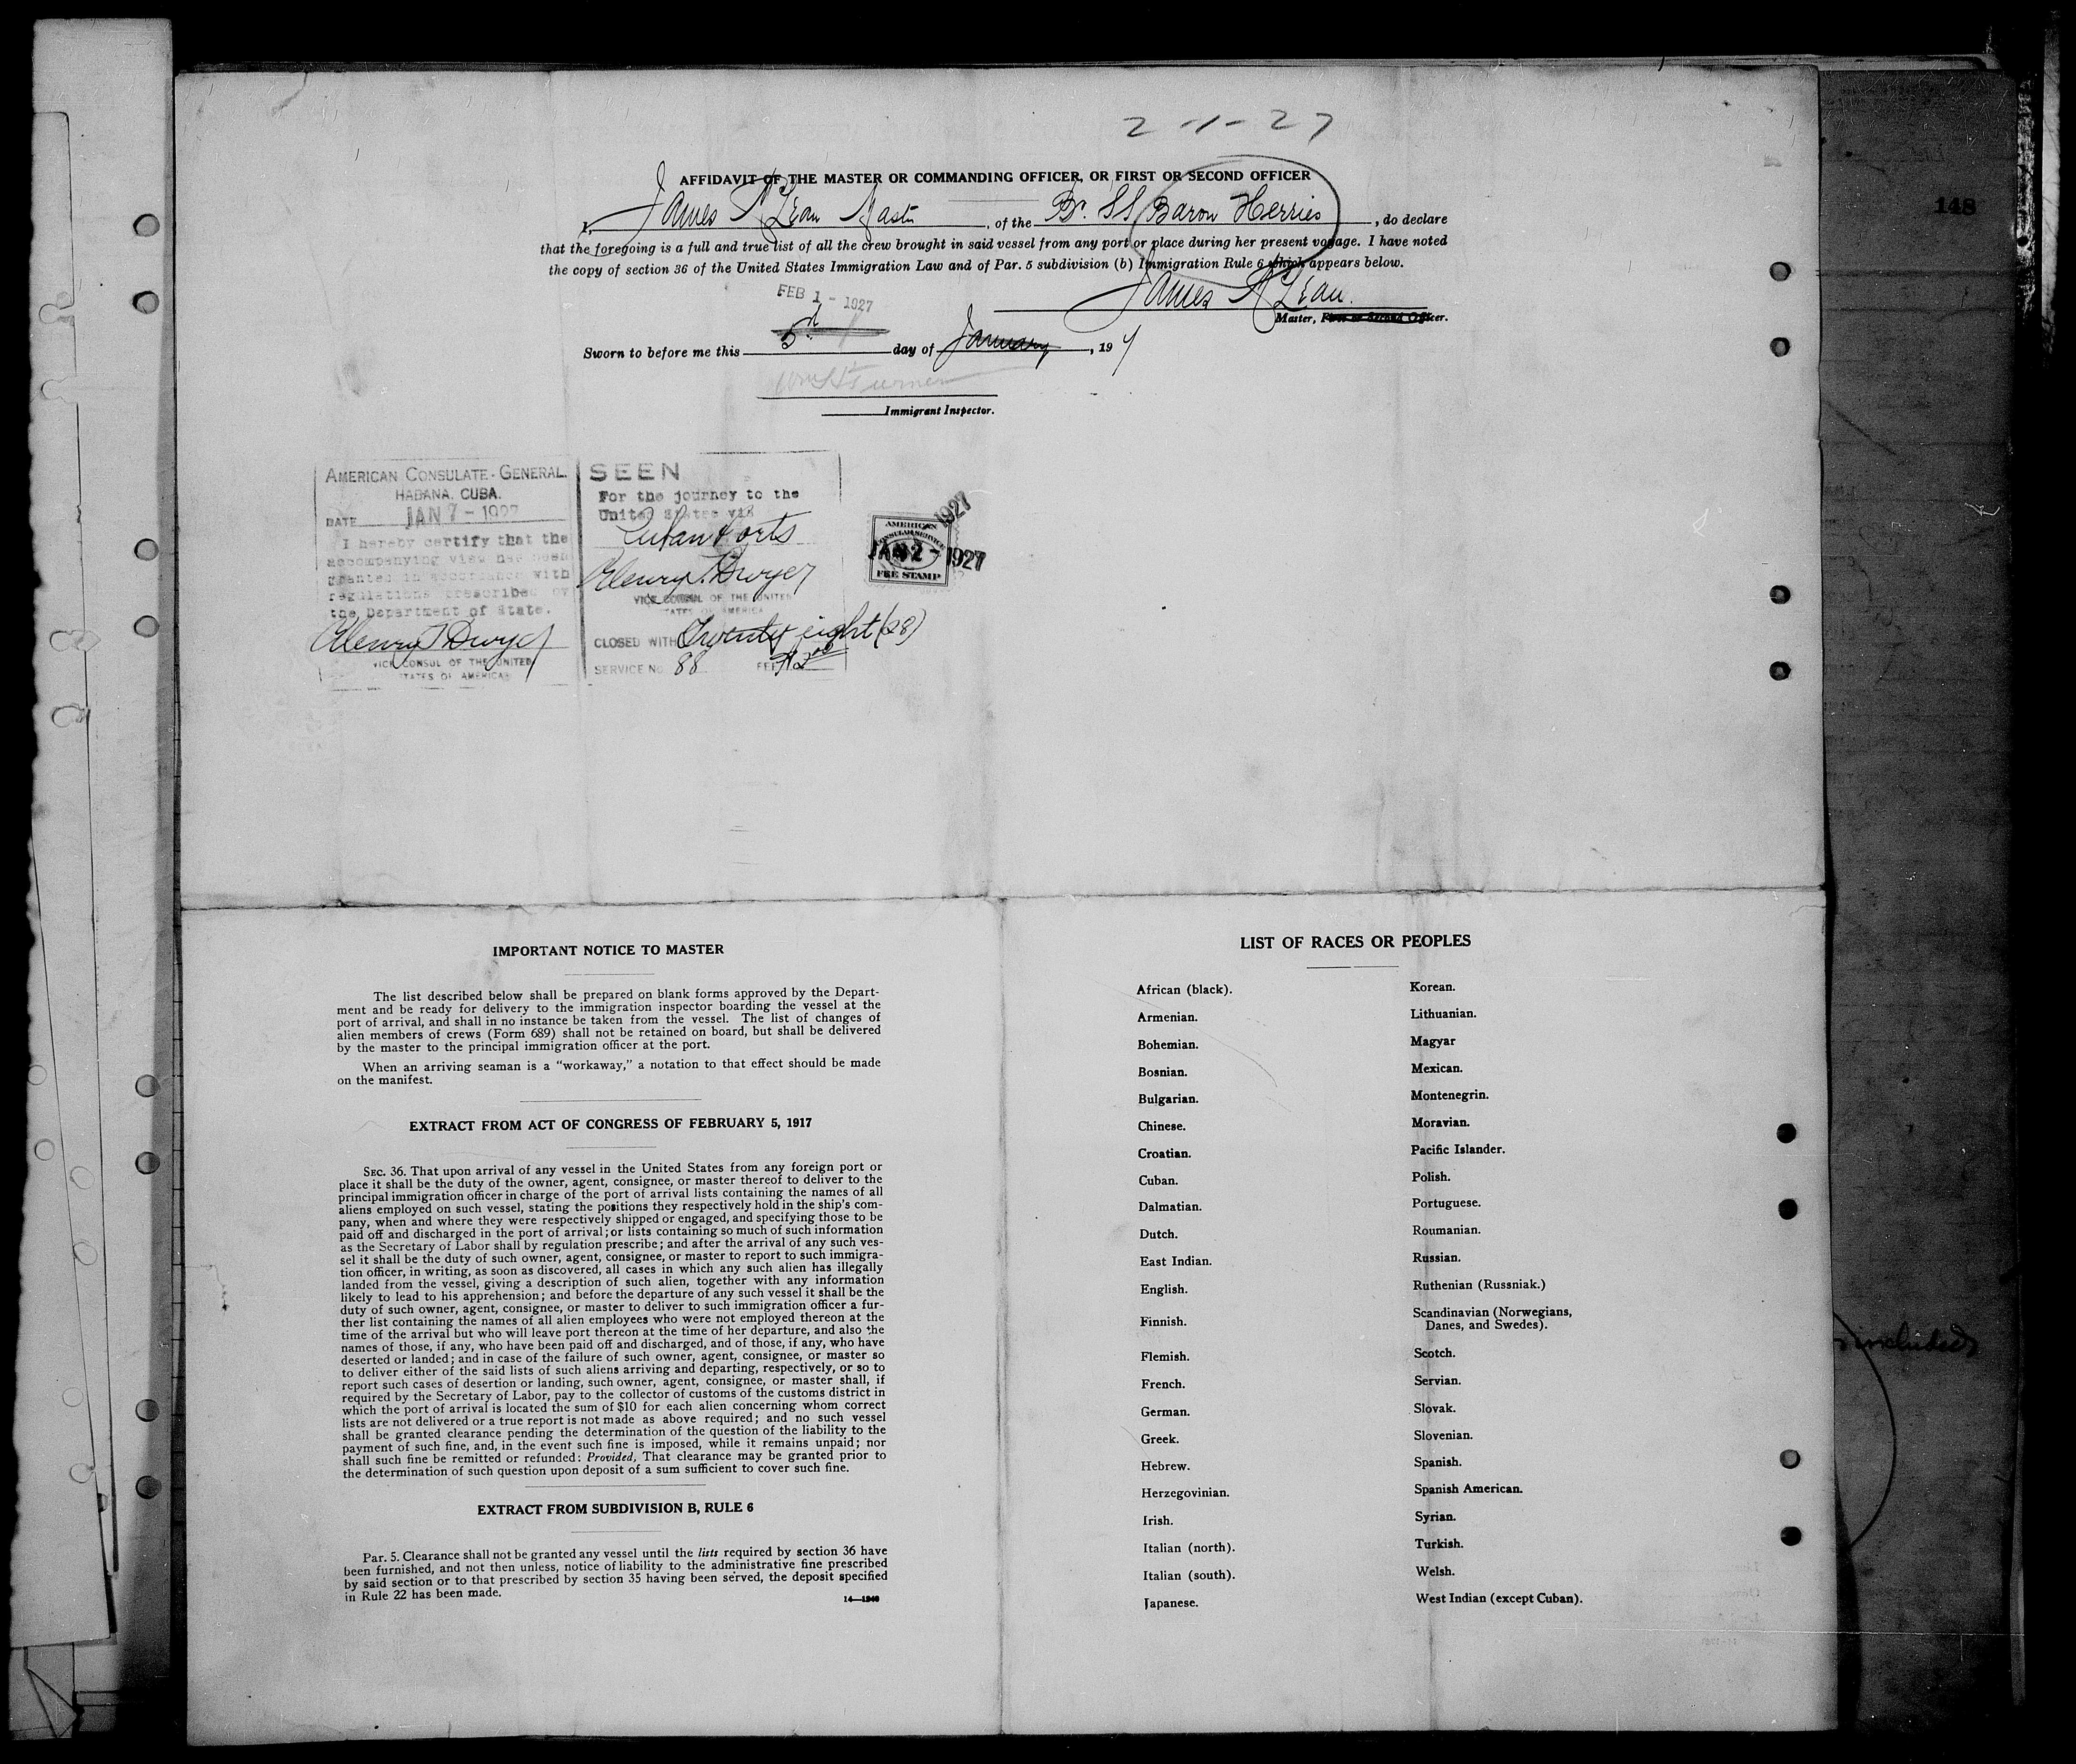 2-1-27
148
AFFIDAVIT OF THE MASTER OR COMMANDING OFFICER, OR FIRST OR SECOND OFFICER
I, James McLean Master, of the Br. SS Baron Herries, do declare
that the foregoing is a full and true list of all the crew brought in said vessel from any port or place during her present voyage. I have noted
the copy of section 36 of the United States Immigration Law and of Par. 5 subdivision (b) Immigration Rule 6 which appears below.
James McLean
Master, First or Second Officer.
FEB 1 - 1927
Sworn to before me this day of January, 19
Wm H Turner
Immigrant Inspector.
AMERICAN CONSULATE-GENERAL.
HABANA, CUBA.
DATE JAN 7 - 1927
I hereby certify that the
accompanying visa has been
granted in accordance with
regulations prescribed by
the Department of State.
Henry T Dwyer
VICE CONSUL OF THE UNITED
STATES OF AMERICA
SEEN
For the journey to the
United States via
Cuban Ports
Henry T. Dwyer
VICE CONSUL OF THE UNITED
STATES OF AMERICA
CLOSED WITH Twenty eight (28)
SERVICE No. 88 FEE $2.00
1927
AMERICAN
CONSULAR SERVICE
1927
FEE STAMP
included
IMPORTANT NOTICE TO MASTER
The list described below shall be prepared on blank forms approved by the Depart-
ment and be ready for delivery to the immigration inspector boarding the vessel at the
port of arrival, and shall in no instance be taken from the vessel. The list of changes of
alien members of crews (Form 689) shall not be retained on board, but shall be delivered
by the master to the principal immigration officer at the port.
When an arriving seaman is a "workaway," a notation to that effect should be made
on the manifest.
EXTRACT FROM ACT OF CONGRESS OF FEBRUARY 5, 1917
SEC. 36. That upon arrival of any vessel in the United States from any foreign port or
place it shall be the duty of the owner, agent, consignee, or master thereof to deliver to the
principal immigration officer in charge of the port of arrival lists containing the names of all
aliens employed on such vessel, stating the positions they respectively hold in the ship's com-
pany, when and where they were respectively shipped or engaged, and specifying those to be
paid off and discharged in the port of arrival; or lists containing so much of such information
as the Secretary of Labor shall by regulation prescribe; and after the arrival of any such ves-
sel it shall be the duty of such owner, agent, consignee, or master to report to such immigra-
tion officer, in writing, as soon as discovered, all cases in which any such alien has illegally
landed from the vessel, giving a description of such alien, together with any information
likely to lead to his apprehension; and before the departure of any such vessel it shall be the
duty of such owner, agent, consignee, or master to deliver to such immigration officer a fur-
ther list containing the names of all alien employees who were not employed thereon at the
time of the arrival but who will leave port thereon at the time of her departure, and also the
names of those, if any, who have been paid off and discharged, and of those, if any, who have
deserted or landed; and in case of the failure of such owner, agent, consignee, or master so
to deliver either of the said lists of such aliens arriving and departing, respectively, or so to
report such cases of desertion or landing, such owner, agent, consignee, or master shall, if
required by the Secretary of Labor, pay to the collector of customs of the customs district in
which the port of arrival is located the sum of $10 for each alien concerning whom correct
lists are not delivered or a true report is not made as above required; and no such vessel
shall be granted clearance pending the determination of the question of the liability to the
payment of such fine, and, in the event such fine is imposed, while it remains unpaid; nor
shall such fine be remitted or refunded: Provided, That clearance may be granted prior to
the determination of such question upon deposit of a sum sufficient to cover such fine.
EXTRACT FROM SUBDIVISION B, RULE 6
Par. 5. Clearance shall not be granted any vessel until the lists required by section 36 have
been furnished, and not then unless, notice of liability to the administrative fine prescribed
by said section or to that prescribed by section 35 having been served, the deposit specified
in Rule 22 has been made.
14—1240
LIST OF RACES OR PEOPLES
African (black).
Armenian.
Bohemian.
Bosnian.
Bulgarian.
Chinese.
Croatian.
Cuban.
Dalmatian.
Dutch.
East Indian.
English.
Finnish.
Flemish.
French.
German.
Greek.
Hebrew.
Herzegovinian.
Irish.
Italian (north).
Italian (south).
Japanese.
Korean.
Lithuanian.
Magyar
Mexican.
Montenegrin.
Moravian.
Pacific Islander.
Polish.
Portuguese.
Roumanian.
Russian.
Ruthenian (Russniak.)
Scandinavian (Norwegians,
Danes, and Swedes).
Scotch.
Servian.
Slovak.
Slovenian.
Spanish.
Spanish American.
Syrian.
Turkish.
Welsh.
West Indian (except Cuban).